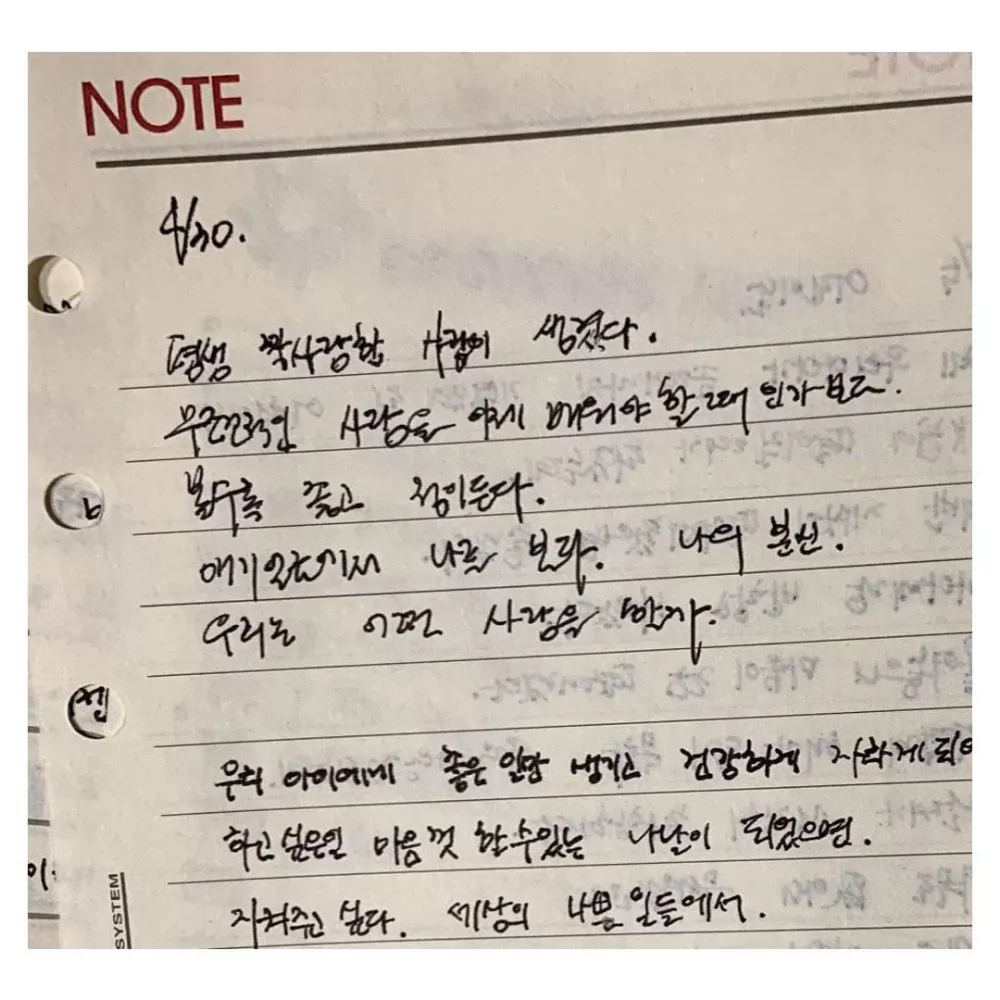 NOTE
4/30.
평생 짝사랑할 사람이 생겼다.
무조건적인 사랑을 이제 배워야 할 때 인가보다.
볼수록 좋고 정이든다.
애기 나를 본다. 나의 분신.
우리는 어떤 사랑을 할까.
우리 아이에게 좋은 일만 생기고 건강하게 자라게 되어
하고 싶은일 마음껏 할 수 있는 나날이 되었으면.
지켜주고 싶다. 세상의 나쁜 일들에서.
SYSTEM